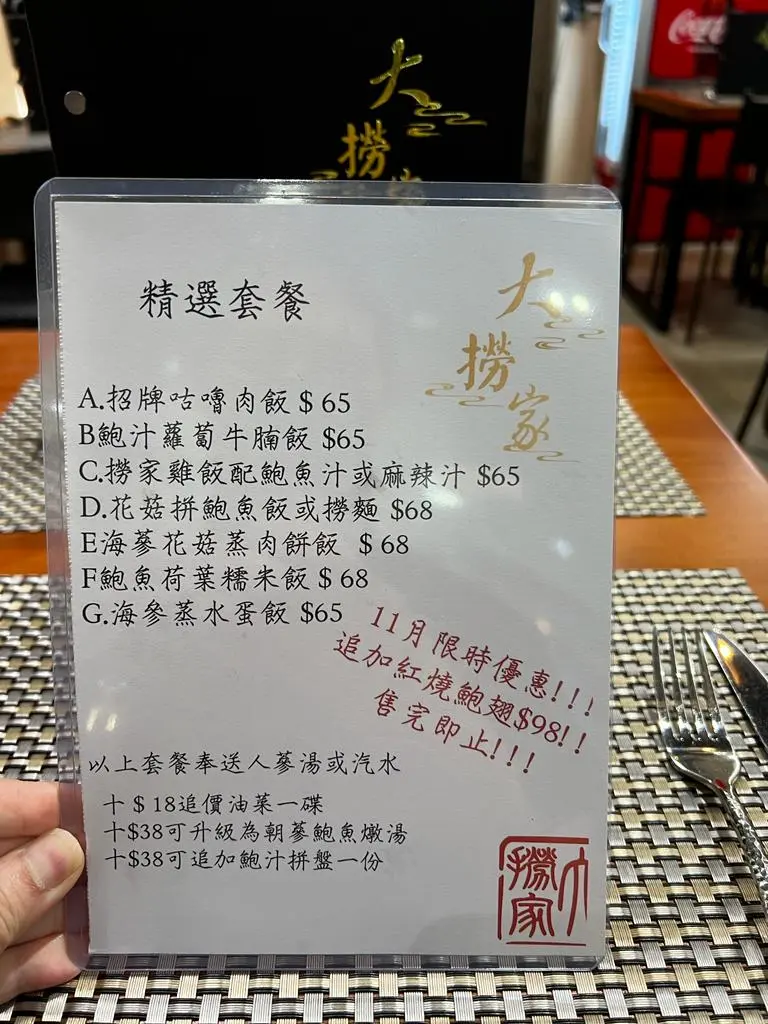 大
撈
Coca
大
撈
家
精選套餐
A.招牌咕嚕肉飯 $ 65
B鮑汁蘿蔔牛腩飯 $65
C.撈家雞飯配鮑魚汁或麻辣汁 $65
D.花菇拼鮑魚飯或撈麵 $68
E海蔘花菇蒸肉餅飯 $ 68
F鮑魚荷葉糯米飯 $ 68
G.海參蒸水蛋飯 $65
11月限時優惠!!!
追加紅燒鮑翅$98!!
售完即止!!!
以上套餐奉送人蔘湯或汽水
十 $ 18追價油菜一碟
十$38可升級為朝蔘鮑魚燉湯
十$38可追加鮑汁拼盤一份
大撈家